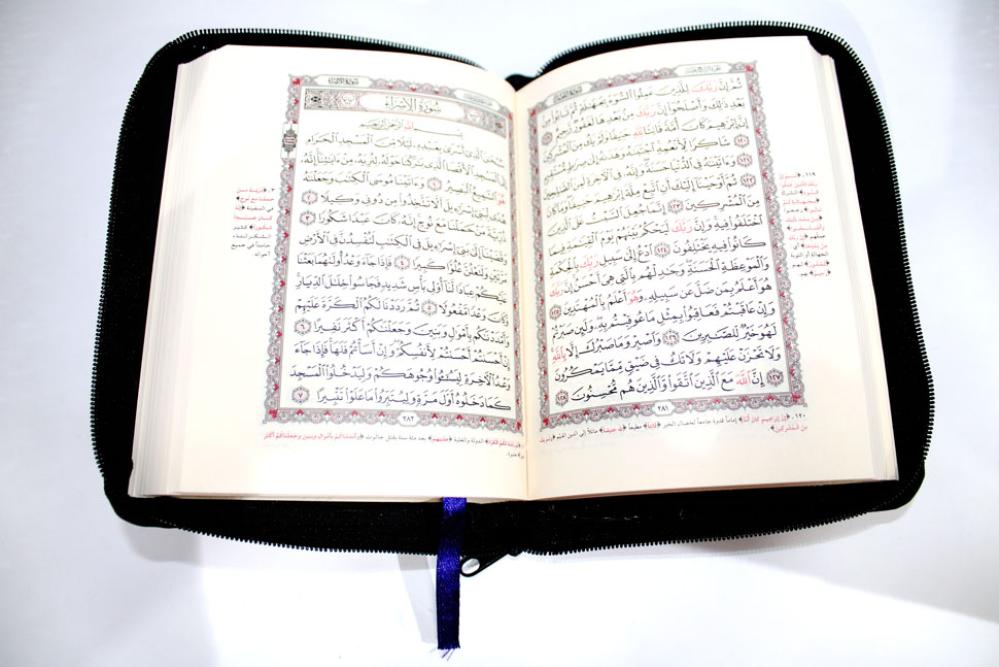 ثُمَّ إِنَّ رَبَّكَ لِلَّذِينَ عَمِلُوا السُّوءَ بِجَهَالَةٍ ثُمَّ تَابُوا مِن
بَعْدِ ذَٰلِكَ وَأَصْلَحُوا إِنَّ رَبَّكَ مِن بَعْدِهَا لَغَفُورٌ رَّحِيمٌ ١١٩
إِنَّ إِبْرَاهِيمَ كَانَ أُمَّةً قَانِتًا لِّلَّهِ حَنِيفًا وَلَمْ يَكُ مِنَ الْمُشْرِكِينَ
١٢٠ شَاكِرًا لِّأَنْعُمِهِ اجْتَبَاهُ وَهَدَاهُ إِلَىٰ صِرَاطٍ مُّسْتَقِيمٍ
١٢١ وَآتَيْنَاهُ فِي الدُّنْيَا حَسَنَةً وَإِنَّهُ فِي الْآخِرَةِ لَمِنَ الصَّالِحِينَ
١٢٢ ثُمَّ أَوْحَيْنَا إِلَيْكَ أَنِ اتَّبِعْ مِلَّةَ إِبْرَاهِيمَ حَنِيفًا وَمَا كَانَ
مِنَ الْمُشْرِكِينَ ١٢٣ إِنَّمَا جُعِلَ السَّبْتُ عَلَى الَّذِينَ
اخْتَلَفُوا فِيهِ وَإِنَّ رَبَّكَ لَيَحْكُمُ بَيْنَهُمْ يَوْمَ الْقِيَامَةِ فِيمَا
كَانُوا فِيهِ يَخْتَلِفُونَ ١٢٤ ادْعُ إِلَىٰ سَبِيلِ رَبِّكَ بِالْحِكْمَةِ
وَالْمَوْعِظَةِ الْحَسَنَةِ وَجَادِلْهُم بِالَّتِي هِيَ أَحْسَنُ إِنَّ رَبَّكَ
هُوَ أَعْلَمُ بِمَن ضَلَّ عَن سَبِيلِهِ وَهُوَ أَعْلَمُ بِالْمُهْتَدِينَ ١٢٥
وَإِنْ عَاقَبْتُمْ فَعَاقِبُوا بِمِثْلِ مَا عُوقِبْتُم بِهِ وَلَئِن صَبَرْتُمْ
لَهُوَ خَيْرٌ لِّلصَّابِرِينَ ١٢٦ وَاصْبِرْ وَمَا صَبْرُكَ إِلَّا بِاللَّهِ
وَلَا تَحْزَنْ عَلَيْهِمْ وَلَا تَكُ فِي ضَيْقٍ مِّمَّا يَمْكُرُونَ
١٢٧ إِنَّ اللَّهَ مَعَ الَّذِينَ اتَّقَوا وَّالَّذِينَ هُم مُّحْسِنُونَ ١٢٨
٢٨١
سُورَةُ الْإِسْرَاءِ
بِسْمِ اللَّهِ الرَّحْمَٰنِ الرَّحِيمِ
سُبْحَانَ الَّذِي أَسْرَىٰ بِعَبْدِهِ لَيْلًا مِّنَ الْمَسْجِدِ الْحَرَامِ
إِلَى الْمَسْجِدِ الْأَقْصَى الَّذِي بَارَكْنَا حَوْلَهُ لِنُرِيَهُ مِنْ آيَاتِنَا إِنَّهُ
هُوَ السَّمِيعُ الْبَصِيرُ ١ وَآتَيْنَا مُوسَى الْكِتَابَ وَجَعَلْنَاهُ
هُدًى لِّبَنِي إِسْرَائِيلَ أَلَّا تَتَّخِذُوا مِن دُونِي وَكِيلًا ٢
ذُرِّيَّةَ مَنْ حَمَلْنَا مَعَ نُوحٍ إِنَّهُ كَانَ عَبْدًا شَكُورًا ٣
وَقَضَيْنَا إِلَىٰ بَنِي إِسْرَائِيلَ فِي الْكِتَابِ لَتُفْسِدُنَّ فِي الْأَرْضِ
مَرَّتَيْنِ وَلَتَعْلُنَّ عُلُوًّا كَبِيرًا ٤ فَإِذَا جَاءَ وَعْدُ أُولَاهُمَا بَعَثْنَا
عَلَيْكُمْ عِبَادًا لَّنَا أُولِي بَأْسٍ شَدِيدٍ فَجَاسُوا خِلَالَ الدِّيَارِ
وَكَانَ وَعْدًا مَّفْعُولًا ٥ ثُمَّ رَدَدْنَا لَكُمُ الْكَرَّةَ عَلَيْهِمْ
وَأَمْدَدْنَاكُم بِأَمْوَالٍ وَبَنِينَ وَجَعَلْنَاكُمْ أَكْثَرَ نَفِيرًا ٦
إِنْ أَحْسَنتُمْ أَحْسَنتُمْ لِأَنفُسِكُمْ وَإِنْ أَسَأْتُمْ فَلَهَا فَإِذَا جَاءَ
وَعْدُ الْآخِرَةِ لِيَسُوءُوا وُجُوهَكُمْ وَلِيَدْخُلُوا الْمَسْجِدَ
كَمَا دَخَلُوهُ أَوَّلَ مَرَّةٍ وَلِيُتَبِّرُوا مَا عَلَوْا تَتْبِيرًا ٧
٢٨٢